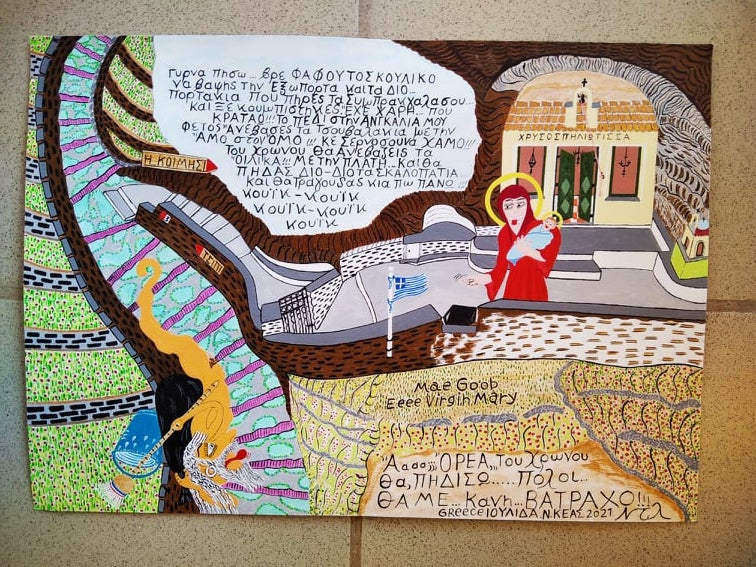 Γυρνα πησω... βρε ΦΑΦΟΥΤΟΣΚΟΥΛΙΚΟ
να βαψης την Έξωπορτα και τα Διο...
Πορτακια που πηρες τα Συμπραγκαλασου...
και ΞΕΚΟΥΜΠΙΣΤΗΚΕΣ ΈΧΕ ΧΑΡΗ... που
ΚΡΑΤΑΟ!!! το ΠΕΔΙ ΣΤΗΝ ΑΝΓΚΑΛΙΑ ΜΟΥ
ΦΕΤΟΣ ΆΝΕΒΑΣΕΣ ΤΑ ΤΣΟΥΒΑΛΑΚΙΑ ΜΕ ΤΗΝ
ΆΜΟ ΣΤΟΝ ΟΜΟ!!! ΚΕ ΣΕΡΝΟΣΟΥΝΑ ΧΑΜΟ!!!
Του χρωνου ΘΑ ΑΝΕΒΑΖΕΙΣ ΤΑ
ΤΟΙΛΙΚΑ!!! ΜΕ ΤΗΝ ΠΛΑΤΗ... ΚΑΙ ΘΑ
ΠΗΔΑΣ ΔΙΟ-ΔΙΟ ΤΑ ΣΚΑΛΟΠΑΤΙΑ
ΚΑΙ ΘΑ ΤΡΑΓΟΥΔΑΣ ΚΙΑ ΠΟ ΠΑΝΩ
ΚΟΥΪΚ-ΚΟΥΪΚ
ΚΟΥΪΚ-ΚΟΥΪΚ
ΚΟΥΪΚ
Η. ΚΟΙΜΗΣΙ
ΧΡΥΣΟΣΠΗΛΙΩΤΙΣΣΑ
Mae Goob
Eeee Virgin Mary
Αααα,,, ΌΡΕΑ,,, Του χρωνου
ΘΑ, ΠΗΔΙΣΩ..... ΠΟΛΟΙ...
ΘΑ ΜΕ... ΚΑΝΗ... ΒΑΤΡΑΧΟ!!!
Greece ΙΟΥΛΙΔΑ.Ν.ΚΕΑΣ 2021